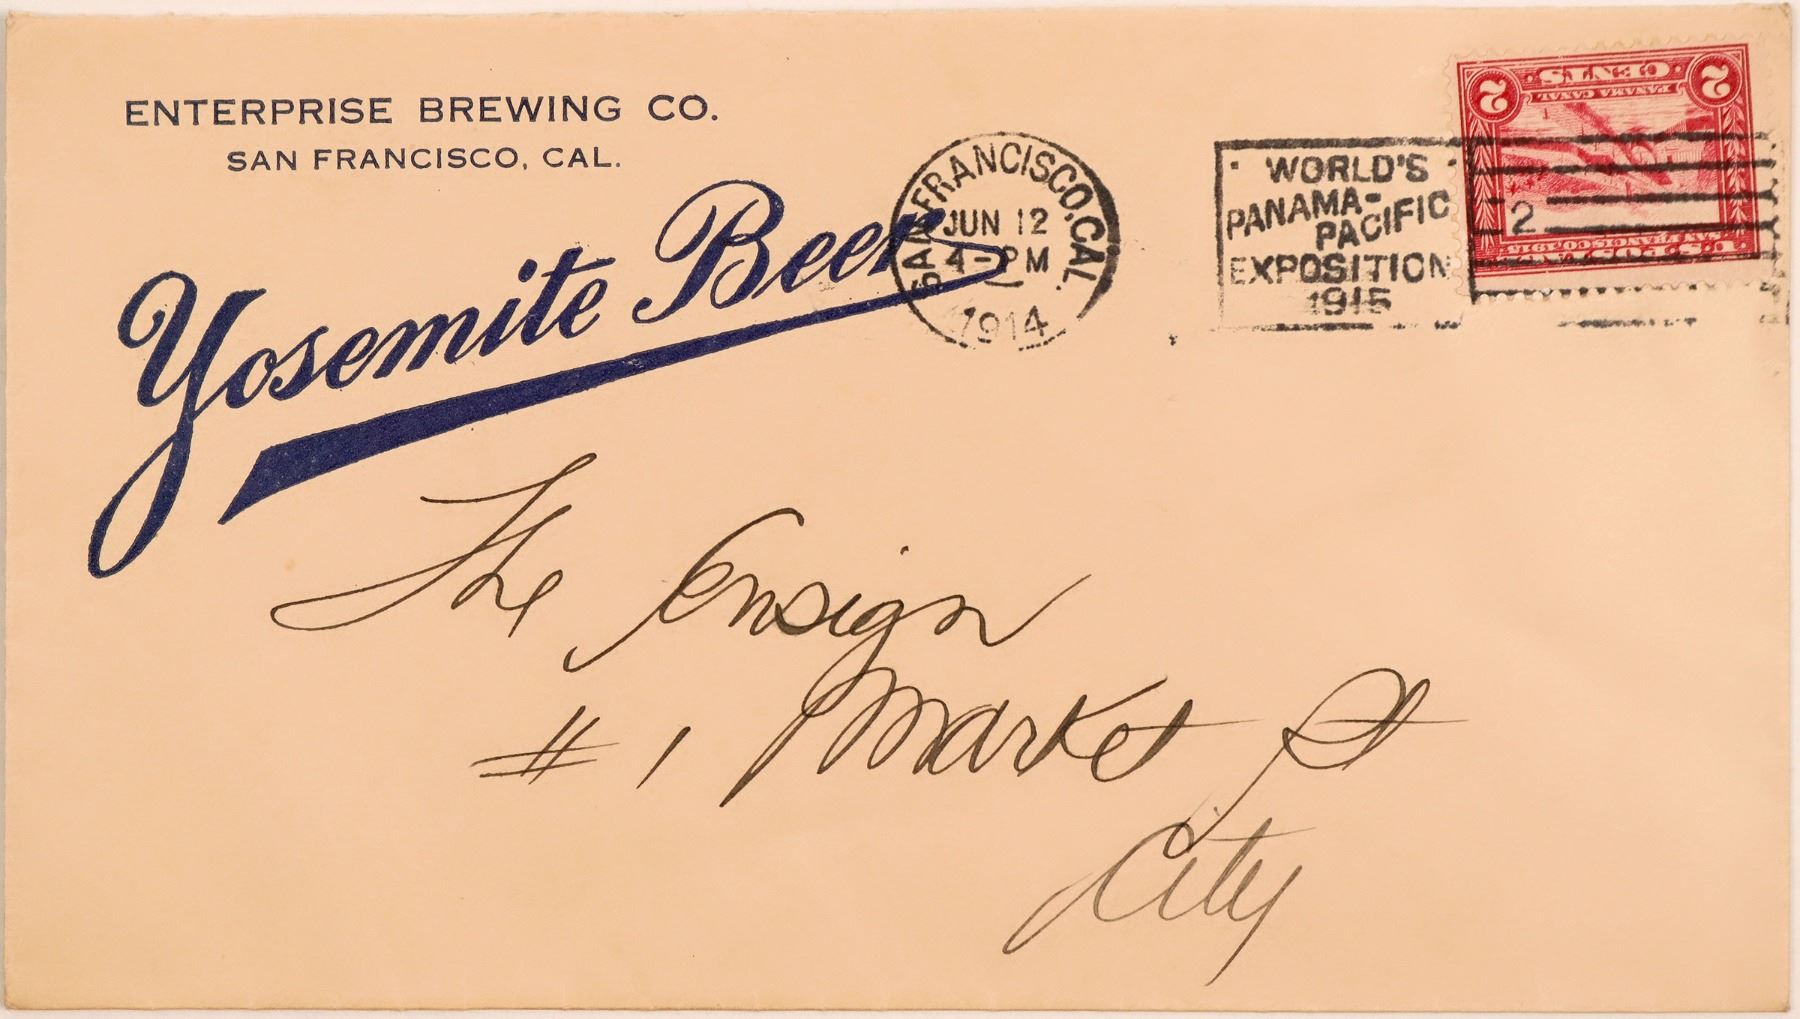 ENTERPRISE BREWING CO.
SAN FRANCISCO, CAL.
Yosemite Beer
SAN FRANCISCO, CAL.
JUN 12
4-PM
1914
WORLD'S
PANAMA-
PACIFIC
EXPOSITION
1915
2
U.S. POSTAGE
SAN FRANCISCO 1915
PANAMA CANAL
2 CENTS 2
The Ensign
#1 Market St
City